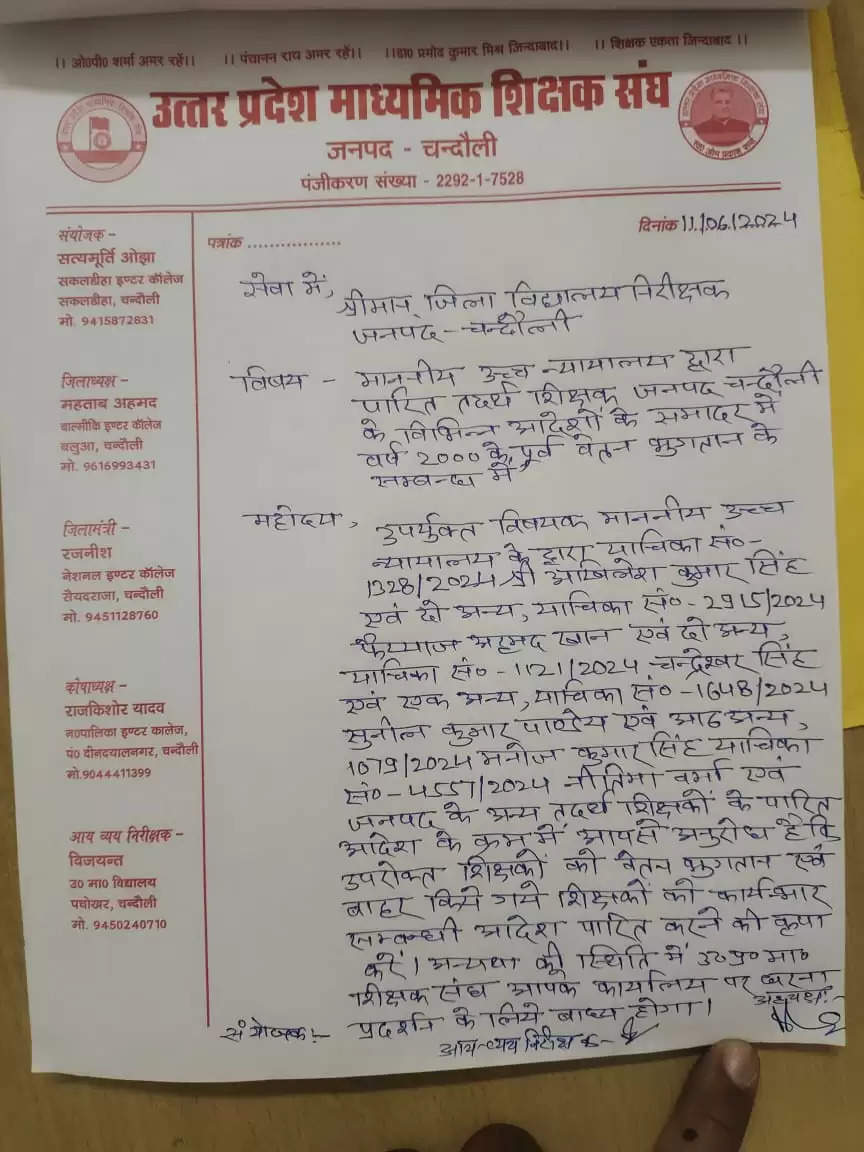 ।। ओ०पी० शर्मा अमर रहें।। ।। पंचानन राय अमर रहें।। ।।डा० प्रमोद कुमार मिश्र जिन्दाबाद।। ।। शिक्षक एकता जिन्दाबाद ।।
उत्तर प्रदेश माध्यमिक शिक्षक संघ
जनपद - चन्दौली
पंजीकरण संख्या - 2292-1-7528
पत्रांक ................. दिनांक 11/06/2024
संयोजक -
सत्यमूर्ति ओझा
सकलडीहा इण्टर कॉलेज
सकलडीहा, चन्दौली
मो. 9415872831
जिलाध्यक्ष -
महताब अहमद
बाल्मीकि इण्टर कॉलेज
बलुआ, चन्दौली
मो. 9616993431
जिलामंत्री -
रजनीश
नेशनल इण्टर कॉलेज
सैयदराजा, चन्दौली
मो. 9451128760
कोषाध्यक्ष -
राजकिशोर यादव
न०पालिका इण्टर कालेज,
पं० दीनदयालनगर, चन्दौली
मो.9044411399
आय व्यय निरीक्षक -
विजयन्त
उ० मा० विद्यालय
पधोखर, चन्दौली
मो. 9450240710
सेवा में,
श्रीमान् जिला विद्यालय निरीक्षक
जनपद - चन्दौली
विषय - माननीय उच्च न्यायालय द्वारा
पारित तदर्थ शिक्षक जनपद चन्दौली
के विभिन्न आदेशों के समादर में
वर्ष 2000 के पूर्व वेतन भुगतान के
सम्बन्ध में
महोदय,
उपर्युक्त विषयक माननीय उच्च
न्यायालय के द्वारा याचिका सं०-
1328/2024 श्री अखिलेश कुमार सिंह
एवं दो अन्य, याचिका सं० - 2915/2024
फैय्याज अहमद खान एवं दो अन्य,
याचिका सं० - 1121/2024 चन्द्रेश्वर सिंह
एवं एक अन्य, याचिका सं० - 1648/2024
सुनील कुमार पाण्डेय एवं आठ अन्य,
1079/2024 मनोज कुमार सिंह याचिका
सं० - 4557/2024 नीतिमा वर्मा एवं
जनपद के अन्य तदर्थ शिक्षकों के पारित
आदेश के क्रम में आपसे अनुरोध है कि
उपरोक्त शिक्षकों को वेतन भुगतान एवं
बाहर किये गये शिक्षकों को कार्यभार
सम्बन्धी आदेश पारित करने की कृपा
करें। अन्यथा की स्थिति में उ०प्र० मा०
शिक्षक संघ आपके कार्यालय पर धरना
प्रदर्शन के लिये बाध्य होगा।
अध्यक्ष:-
संयोजक:- आय-व्यय निरीक्षक -